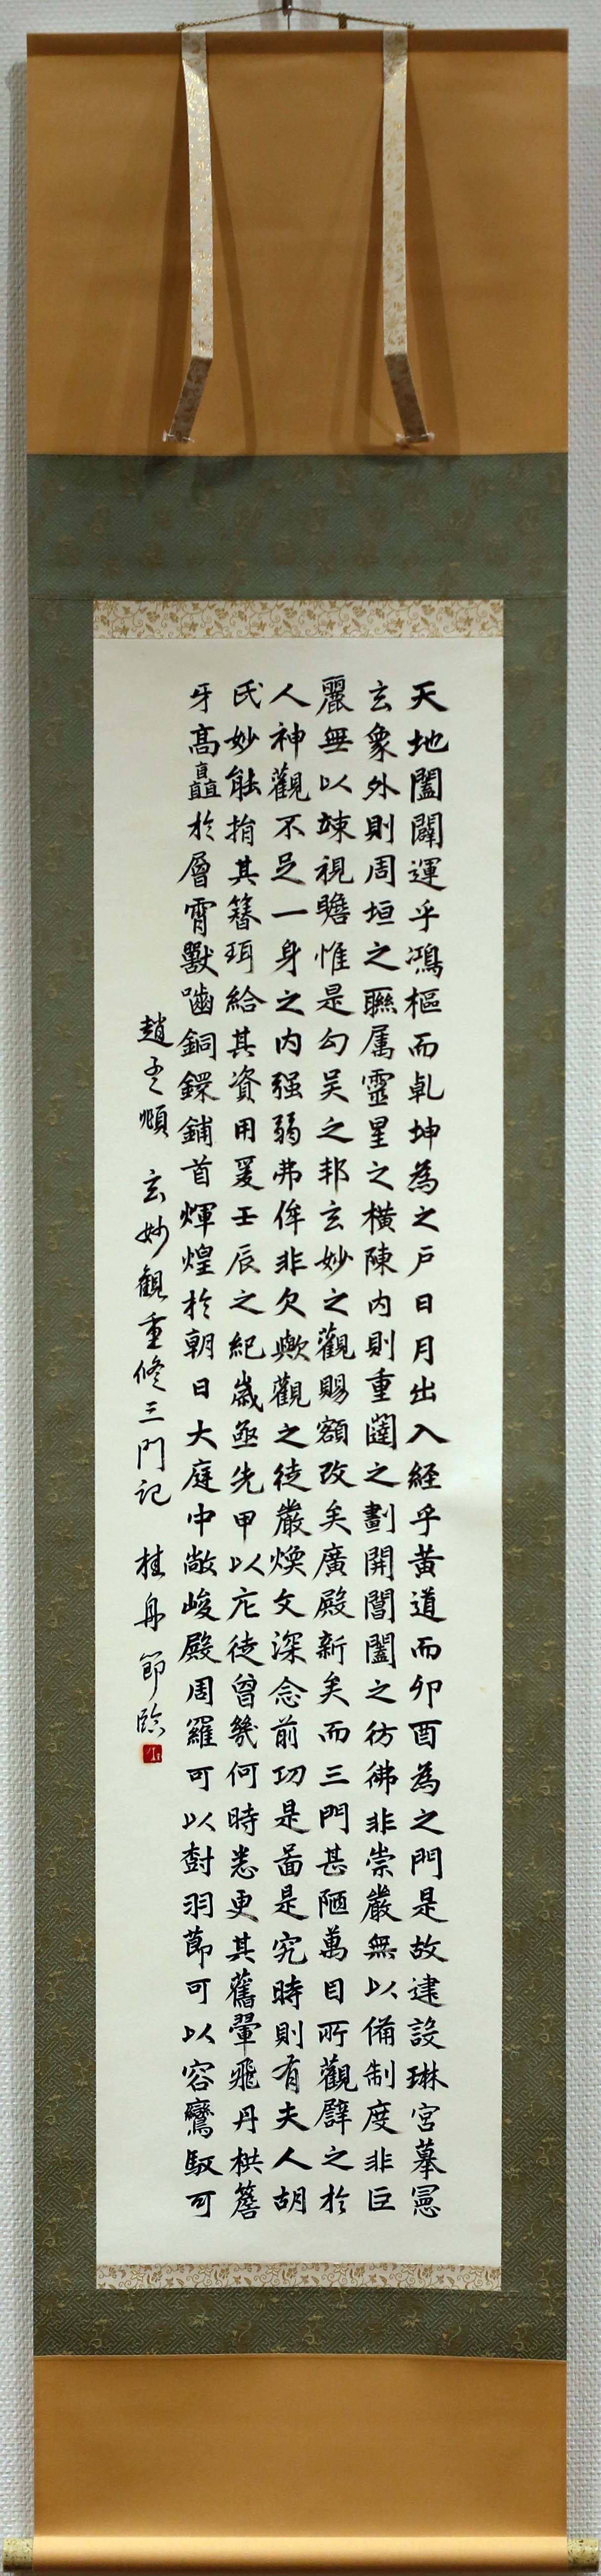 天地闔闢運乎鴻樞而乹坤為之戸日月出入経乎黄道而卯酉為之門是故建設琳宮摹憲
玄象外則周垣之聯属靈星之横陳内則重闥之劃開閶闔之彷彿非崇嚴無以備制度非巨
麗無以竦視瞻惟是勾吴之邦玄妙之觀賜額改矣廣殿新矣而三門甚陋萬目所觀譬之於
人神觀不足一身之内强弱弗侔非欠歟觀之徒嚴煥文深念前功是啚是究時則有夫人胡
氏妙能捐其簪珥給其資用爰壬辰之紀歳亟先甲以庀徒曾幾何時悉更其舊翬飛丹栱簷
牙髙矗於層霄獸嚙銅鐶鋪首煇煌於朝日大庭中敞峻殿周羅可以樹羽莭可以容鸞馭可
趙孟頫 玄妙観重修三門記 桂舟節臨